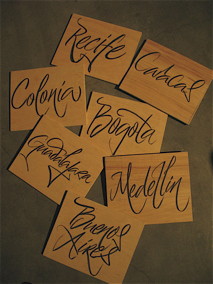 Recife
Caracas
Colonia
Bogota
Guadalajara
Medellin
Buenos
Aires